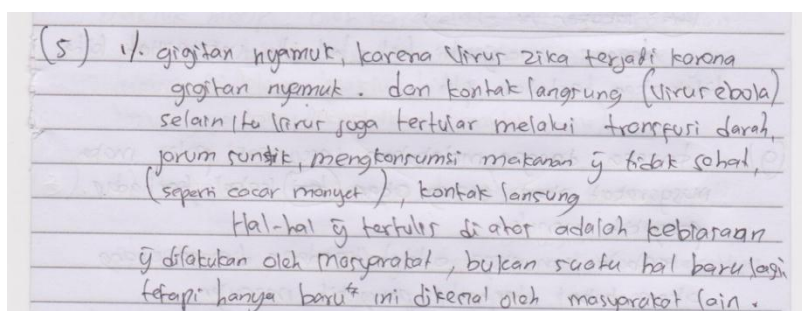 (5) 1/. gigitan nyamuk, karena Virus zika terjadi karena
gigitan nyamuk. dan kontak langsung (Virus ebola)
selain itu Virus juga tertular melalui transfusi darah,
jarum suntik, mengkonsumsi makanan ÿ tidak sehat,
(seperti cacar monyet), kontak lansung
Hal-hal ÿ tertulis di atas adalah kebiasaan
ÿ dilakukan oleh masyarakat, bukan suatu hal baru lagi
tetapi hanya baru² ini dikenal oleh masyarakat lain.